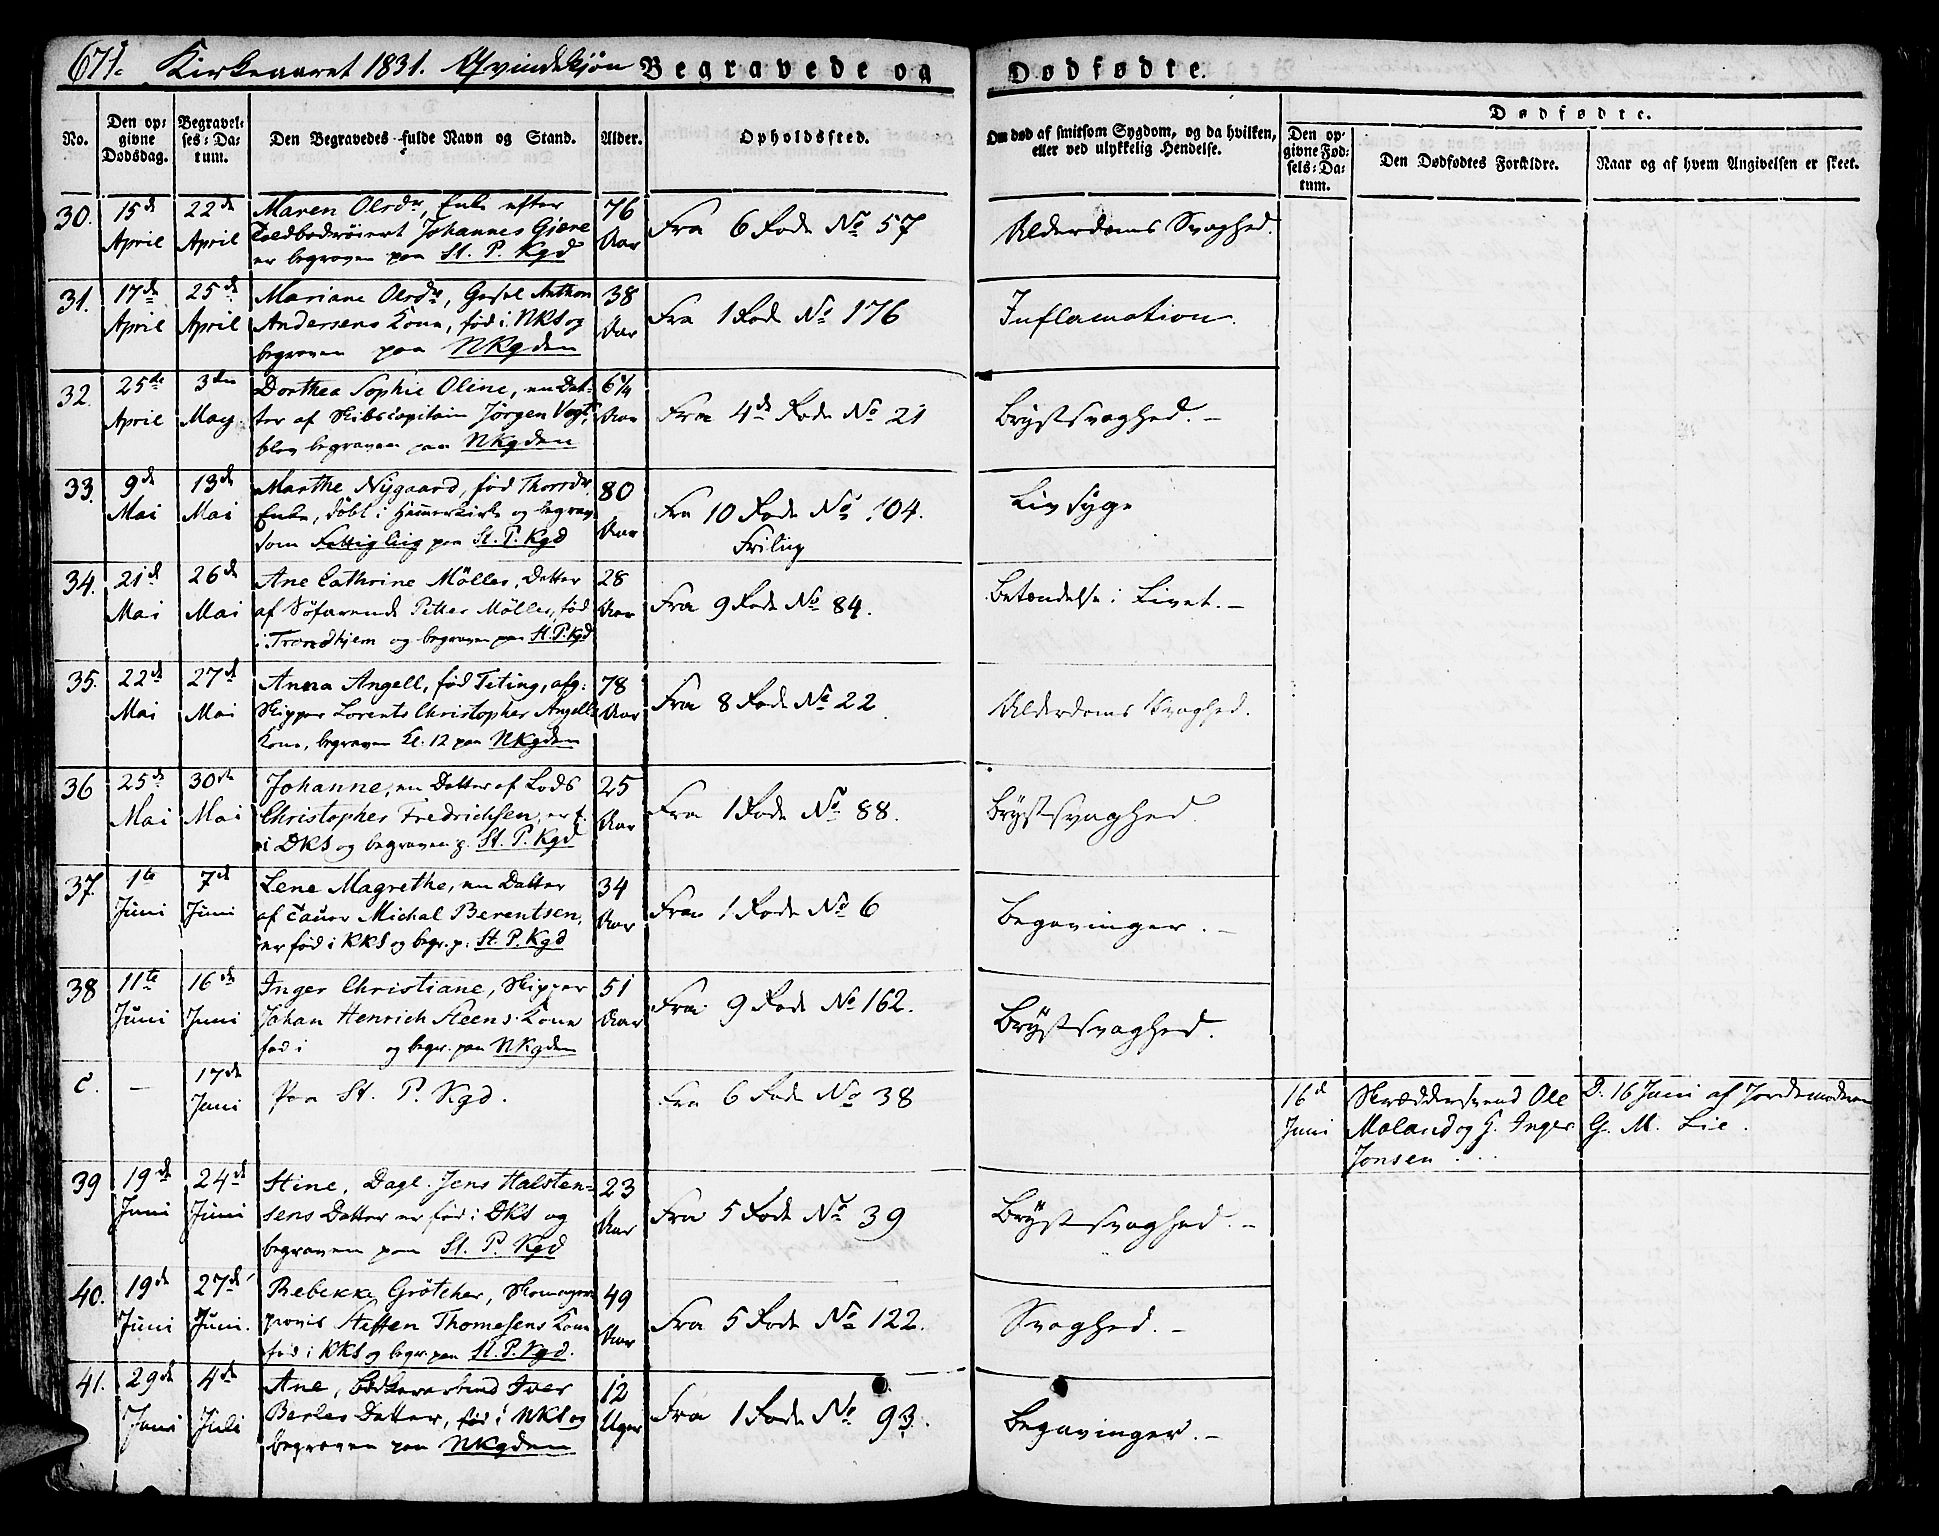 671. Kirkeaaret 1831. Qvindekjøn Begravede og Dødfødte.
No. Den opgivne Dødsdag. Begravelses-Datum. Den Begravedes fulde Navn og Stand. Alder. Opholdssted. Om død af smitsom Sygdom, og da hvilken, eller ved ulykkelig Hendelse. Dødfødte. Den opgivne Fødsels-Datum. Den Dødfødtes Forældre. Naar og af hvem Angivelsen er skeet.
30. 15de April 22de April Maren Olsdr, Enke efter 76 Aar Fra 6 Rode No 57 Alderdoms Svaghed.
Toldbodrøiert Johannes Gjære
er begraven paa St. P. Kgd
31. 17de April 25de April Mariane Olsdr, Gesel Anthon 38 Aar Fra 1 Rode No 176 Inflamation.
Andersens Kone, fød i NKS og
begraven paa NKgden
32. 25de April 3die May Dorthea Sophie Oline, en Dat- 6¼ Aar Fra 4de Rode No 21 Brystsvaghed. –
ter af Skibscapitain Jørgen Vogt,
blev begraven paa NKgden
33. 9de Mai 13de Mai Marthe Nygaard, fød Thorsdr 80 Aar Fra 10 Rode No 104. Livsyge
Enke, døbt i Hammer Kirke og begrav.
som Fattiglig paa St. P. Kgd Frilig
34. 21de Mai 26de Mai Ane Cathrine Möller, Datter 28 Aar Fra 9 Rode No 84. Betændelse i Livet. –
af Söfarende Petter Möller, fød
i Trondhjem og begraven paa St. P. Kgd
35. 22de Mai 27de Mai Anna Angell, fød Teting, afg: 78 Aar Fra 8 Rode No 22 Alderdoms Svaghed.
Skipper Lorents Christopher Angells
Kone, begraven Kl. 12 paa NKgden
36 25de Mai 30te Mai Johanne, en Datter af Lods 25 Aar Fra 1 Rode No 88. Brystsvaghed.
Christopher Fredrichsen, er f.
i DKS og begraven p. St. P. Kgd
37. 1te Juni 7de Juni Lene Magrethe, en Datter 34 Aar Fra 1 Rode No 6 Begavinger. –
af Tauor Michal Berentsen,
er fød i KKS og begr. p: St. P. Kgd
38 11te Juni 16de Juni Inger Christiane, Skipper 51 Aar Fra 9 Rode No 162. Brystsvaghed.
Johan Henrich Steens Kone
fød i og begr. paa NKgden
C. – 17de Juni Paa St. P. Kgd. Fra 6 Rode No 38 16d Juni Skræddersvend Ole D. 16 Juni af Jordemoderen
Moland og H. Inger G. M. Lie.
Jonsen
39 19de Juni 24de Juni Stine, Dagl. Jens Halsten- 23 Aar Fra 5 Rode No 39 Brystsvaghed. –
sens Datter er fød i DKS og
begraven paa St. P. Kgd
40. 19de Juni 27de Juni. Rebekka Grötcher, Skomager 49 Aar Fra 5 Rode No 122. Svaghed. –
Steffen Thomesens Kone
fød i KKS og begr. paa St. P. Kgd.
41. 29de Juni 4de Juli Ane, Bødkersvend Iver 12 Uger Fra 1 Rode No 93. Begavinger. –
Berles Datter, fød i NKS og
begraven paa NKgden